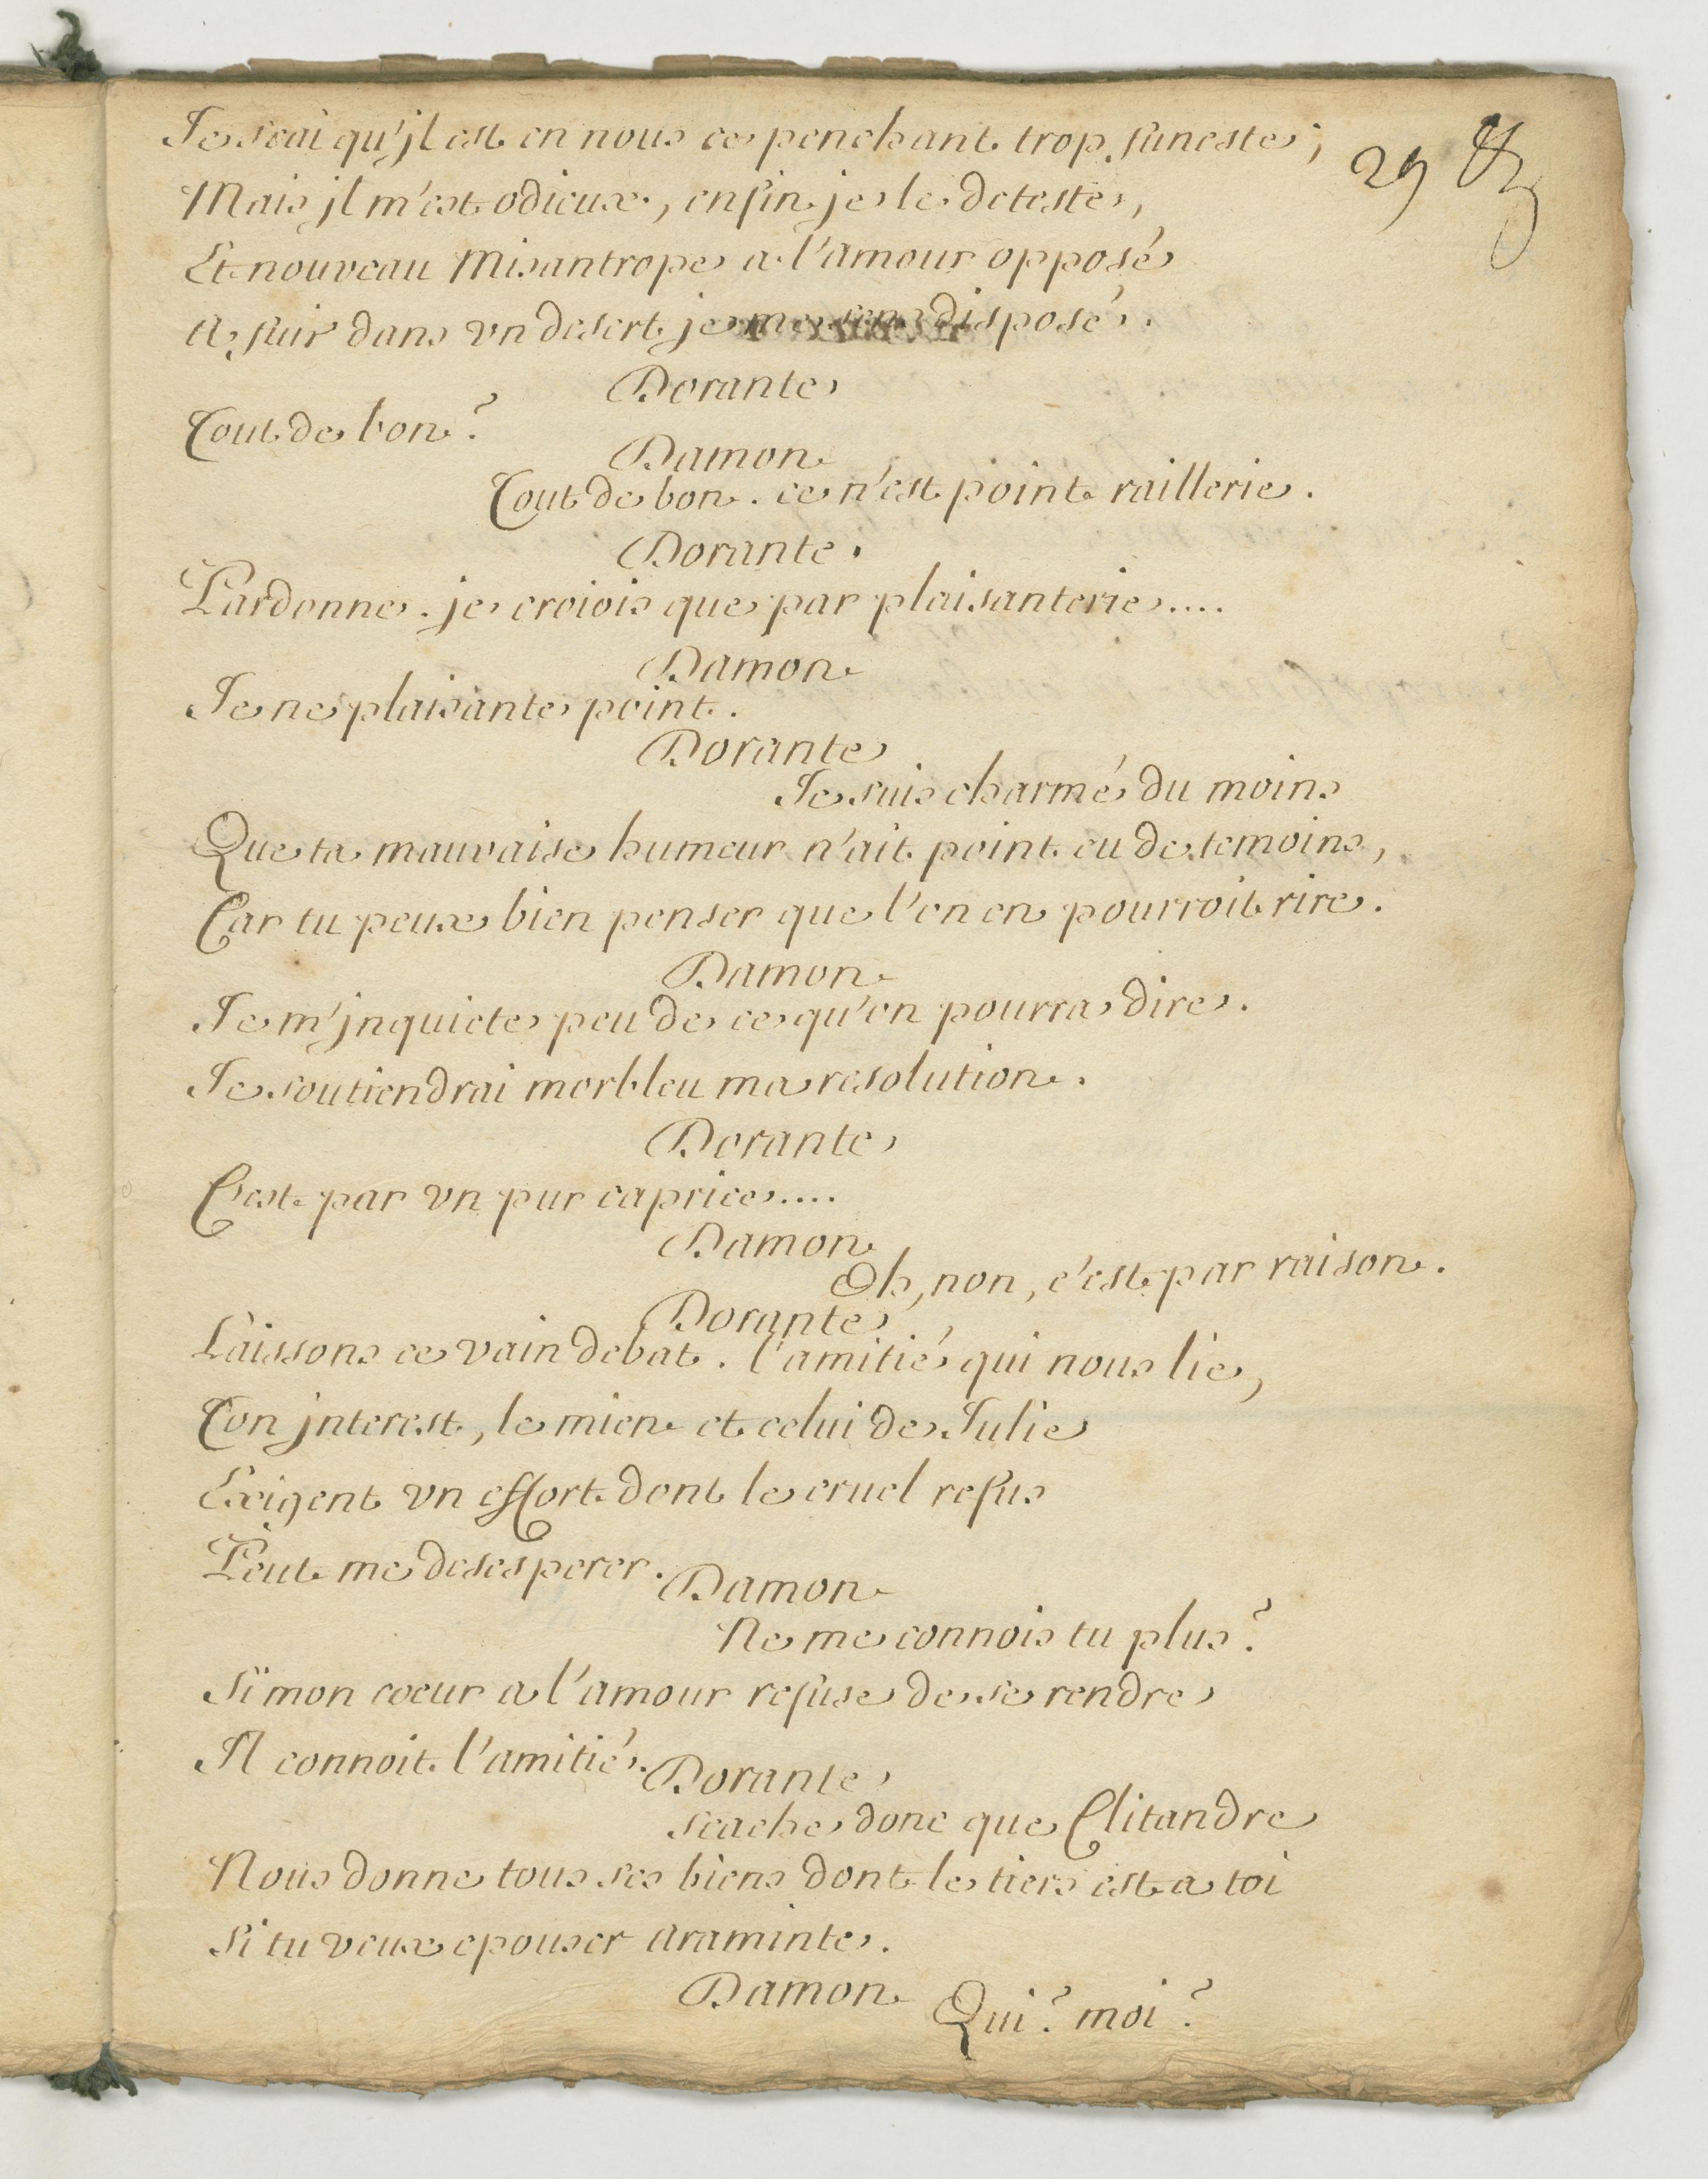 Je scai qu'jl est en nous ce penchant trop funeste;
29
Mais jl m'est odieux, enfin je le deteste,
Et nouveau Misantrope a l'amour opposé
A fuir dans vn desert je me sens disposé.
Dorante
Tout de bon?
Damon
Tout de bon. ce n'est point raillerie.
Dorante.
Pardonne. je croiois que par plaisanterie....
Damon
Je ne plaisante point.
Dorante
Je suis charmé du moins
Que ta mauvaise humeur n'ait point eu de temoins,
Car tu peux bien penser que l'on en pourroit rire.
Damon
Je m'jnquiete peu de ce qu'on pourra dire.
Je soutiendrai morbleu ma resolution.
Dorante
C'est par vn pur caprice....
Damon
Oh, non, c'est par raison.
Dorante
Laissons ce vain debat. l'amitié qui nous lie,
Ton jnterest, le mien et celui de Julie
Exigent vn effort dont le cruel refus
Peut me desesperer.
Damon
Ne me connois tu plus?
Si mon coeur a l'amour refuse de se rendre
Il connoit l'amitié.
Dorante
scache donc que Clitandre
Nous donne tous ses biens dont le tiers est a toi
Si tu veux epouser Araminte.
Damon
Qui? moi?